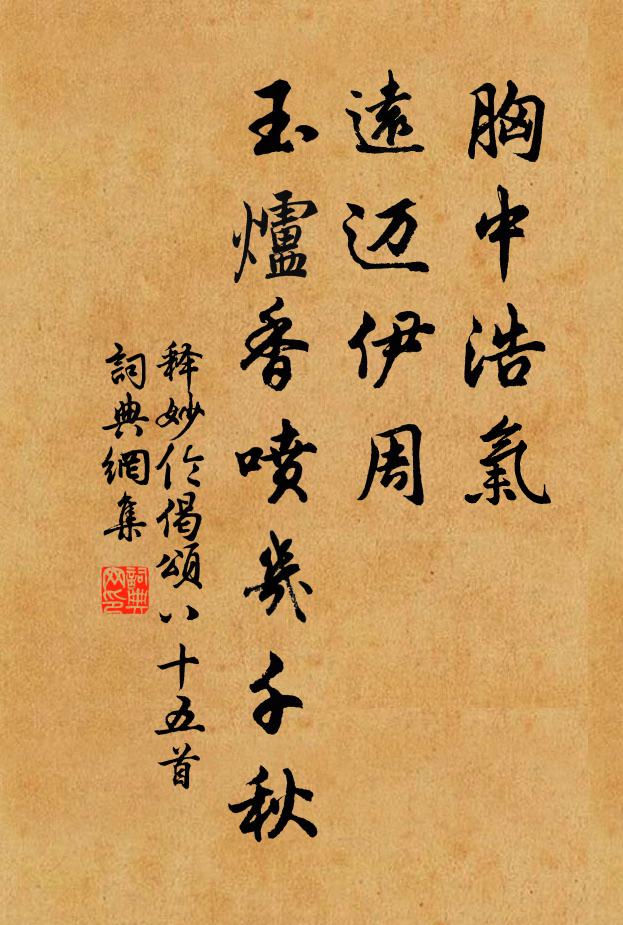 胸中浩氣
遠迈伊周
玉爐香噴幾千秋
释妙伦偈頌八十五首
詞典網集
詞典网印